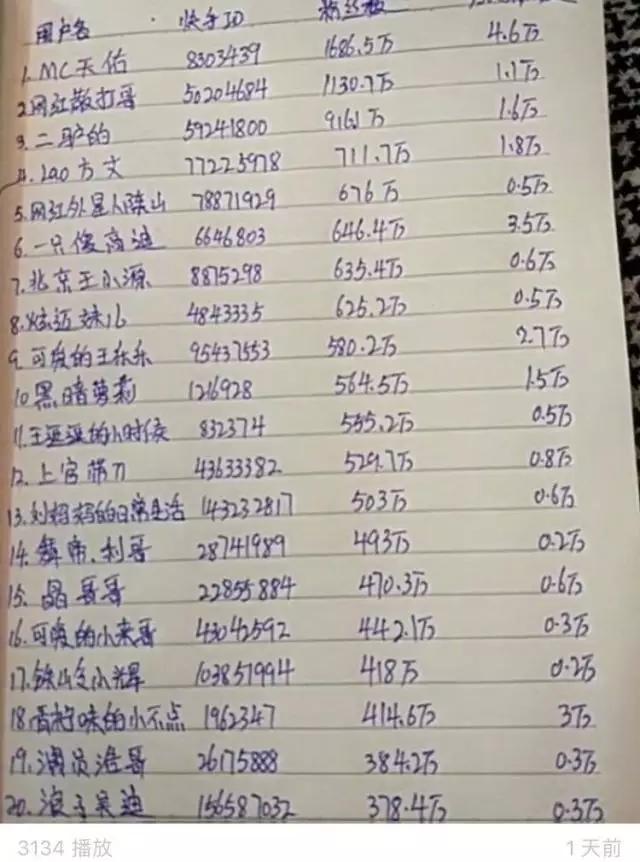 用户名 快手ID 粉丝数
1.MC天佑 8303439 1686.5万 4.6万
2.网红散打哥 50204684 1130.7万 1.1万
3.二驴的 59241800 916.1万 1.6万
4.lao方丈 77225978 711.7万 1.8万
5.网红外星人陈山 78871929 676万 0.5万
6.一只傻高迪 6646803 646.4万 3.5万
7.北京王小源 8875298 635.4万 0.6万
8.炫迈妹儿 4843335 625.2万 0.5万
9.可爱的王乐乐 95437553 580.2万 2.7万
10.黑暗萝莉 1216928 564.5万 1.5万
11.王逗逗的小时侯 832374 555.2万 0.5万
12.上官带刀 43633382 529.7万 0.8万
13.刘妈妈的日常生活 143232817 503万 0.6万
14.辉帝、利哥 28741989 493万 0.2万
15.晶哥哥 22855884 470.3万 0.6万
16.可爱的小来哥 43042592 442.1万 0.3万
17.铁山交小辉 103851994 418万 0.2万
18.香柠味的小不点 1962347 414.6万 3万
19.演员浩哥 26175888 384.2万 0.3万
20.浪子吴迪 156587032 378.4万 0.3万
3134 播放 1天前